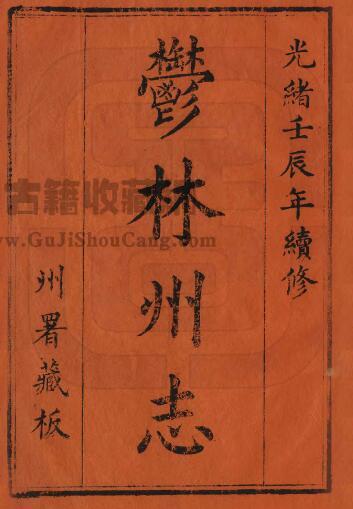 光緒壬辰年續修
鬱林州志
州署藏板
古籍收藏
www.GuJiShouCang.com